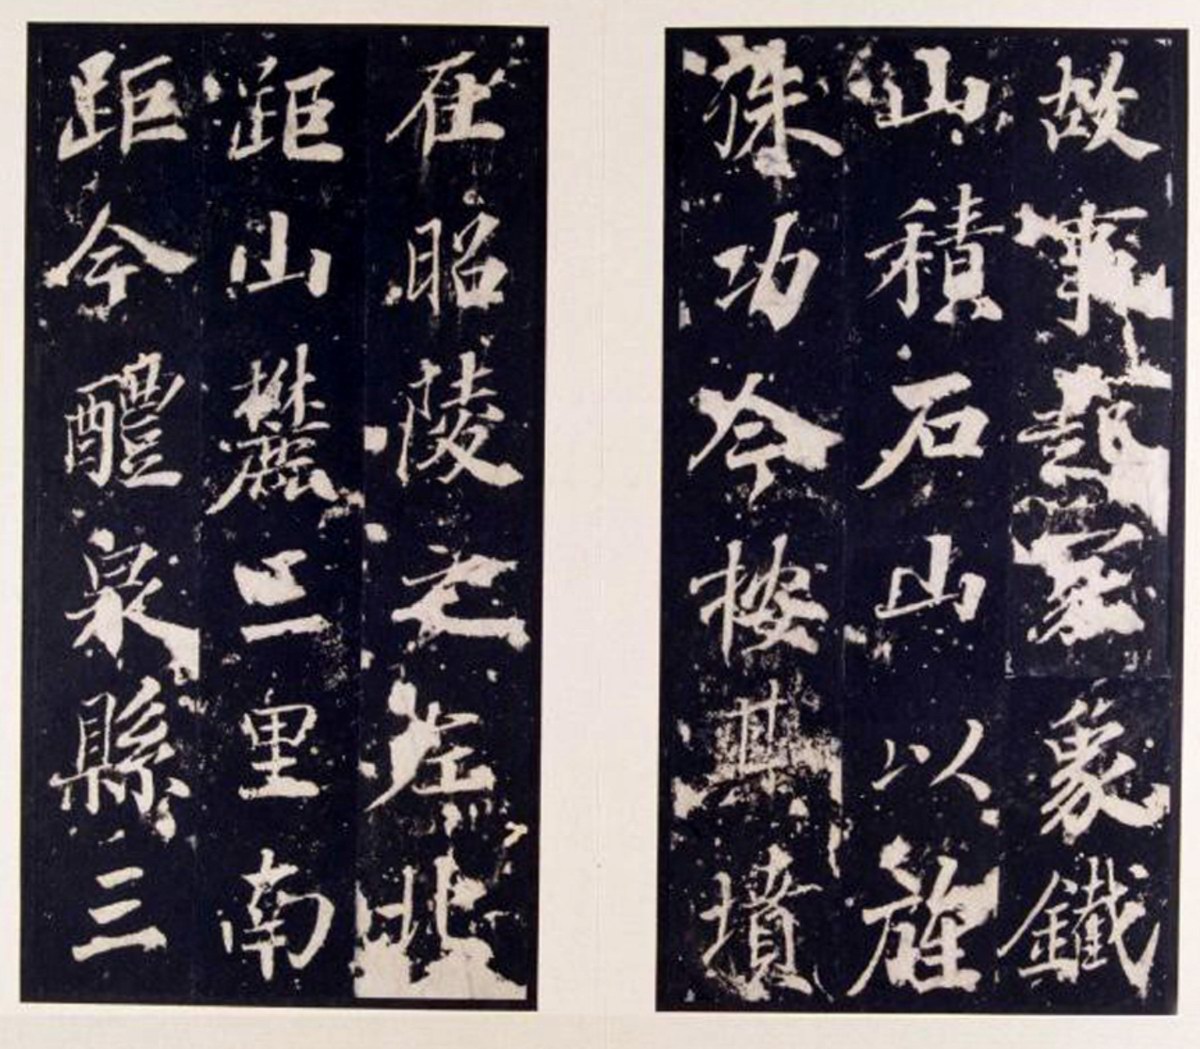 故事起冢象鐵
山積石山以旌
殊功今按其墳
在昭陵之左北
距山麓三里南
距今醴泉縣三